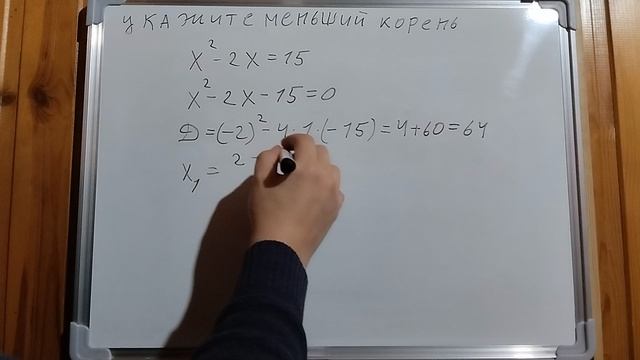 укажите меньший корень
x² - 2x = 15
x² - 2x - 15 = 0
D = (-2)² - 4 · 1 · (-15) = 4 + 60 = 64
x₁ = 2 -